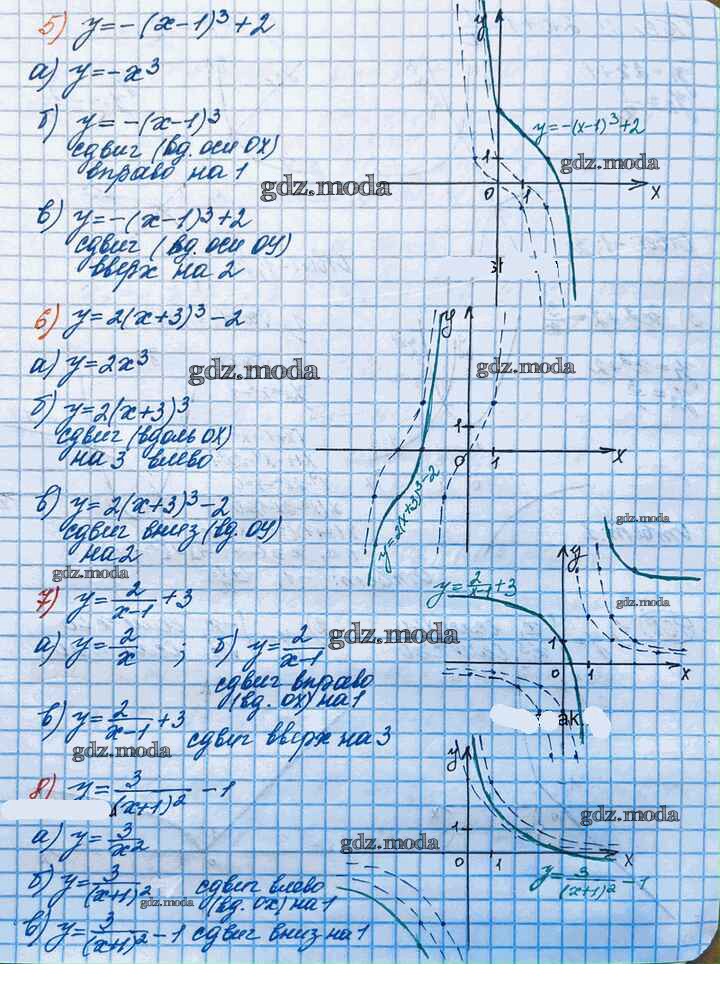 5) y = -(x-1)³+2
а) y = -x³
б) y = -(x-1)³
сдвиг (вд. оси OX)
вправо на 1
в) y = -(x-1)³+2
сдвиг (вд. оси OY)
вверх на 2
y
y = -(x-1)³+2
1
0
1
x
gdz.moda
gdz.moda
6) y = 2(x+3)³-2
а) y = 2x³
gdz.moda
б) y = 2(x+3)³
сдвиг (вдоль OX)
на 3 влево
в) y = 2(x+3)³-2
сдвиг вниз (вд. OY)
на 2
gdz.moda
y
gdz.moda
1
0
1
x
y = 2(x+3)³-2
gdz.moda
7) y = 2/(x-1) + 3
а) y = 2/x ; б) y = 2/(x-1)
gdz.moda
сдвиг вправо
(вд. OX) на 1
в) y = 2/(x-1) + 3
сдвиг вверх на 3
gdz.moda
y = 2/(x-1) + 3
y
gdz.moda
1
1
x
ak
8) y = 3/(x+1)² - 1
а) y = 3/x²
б) y = 3/(x+1)² сдвиг влево
(вд. OX) на 1
gdz.moda
в) y = 3/(x+1)² - 1 сдвиг вниз на 1
y
1
0
1
x
gdz.moda
gdz.moda
y = 3/(x+1)² - 1